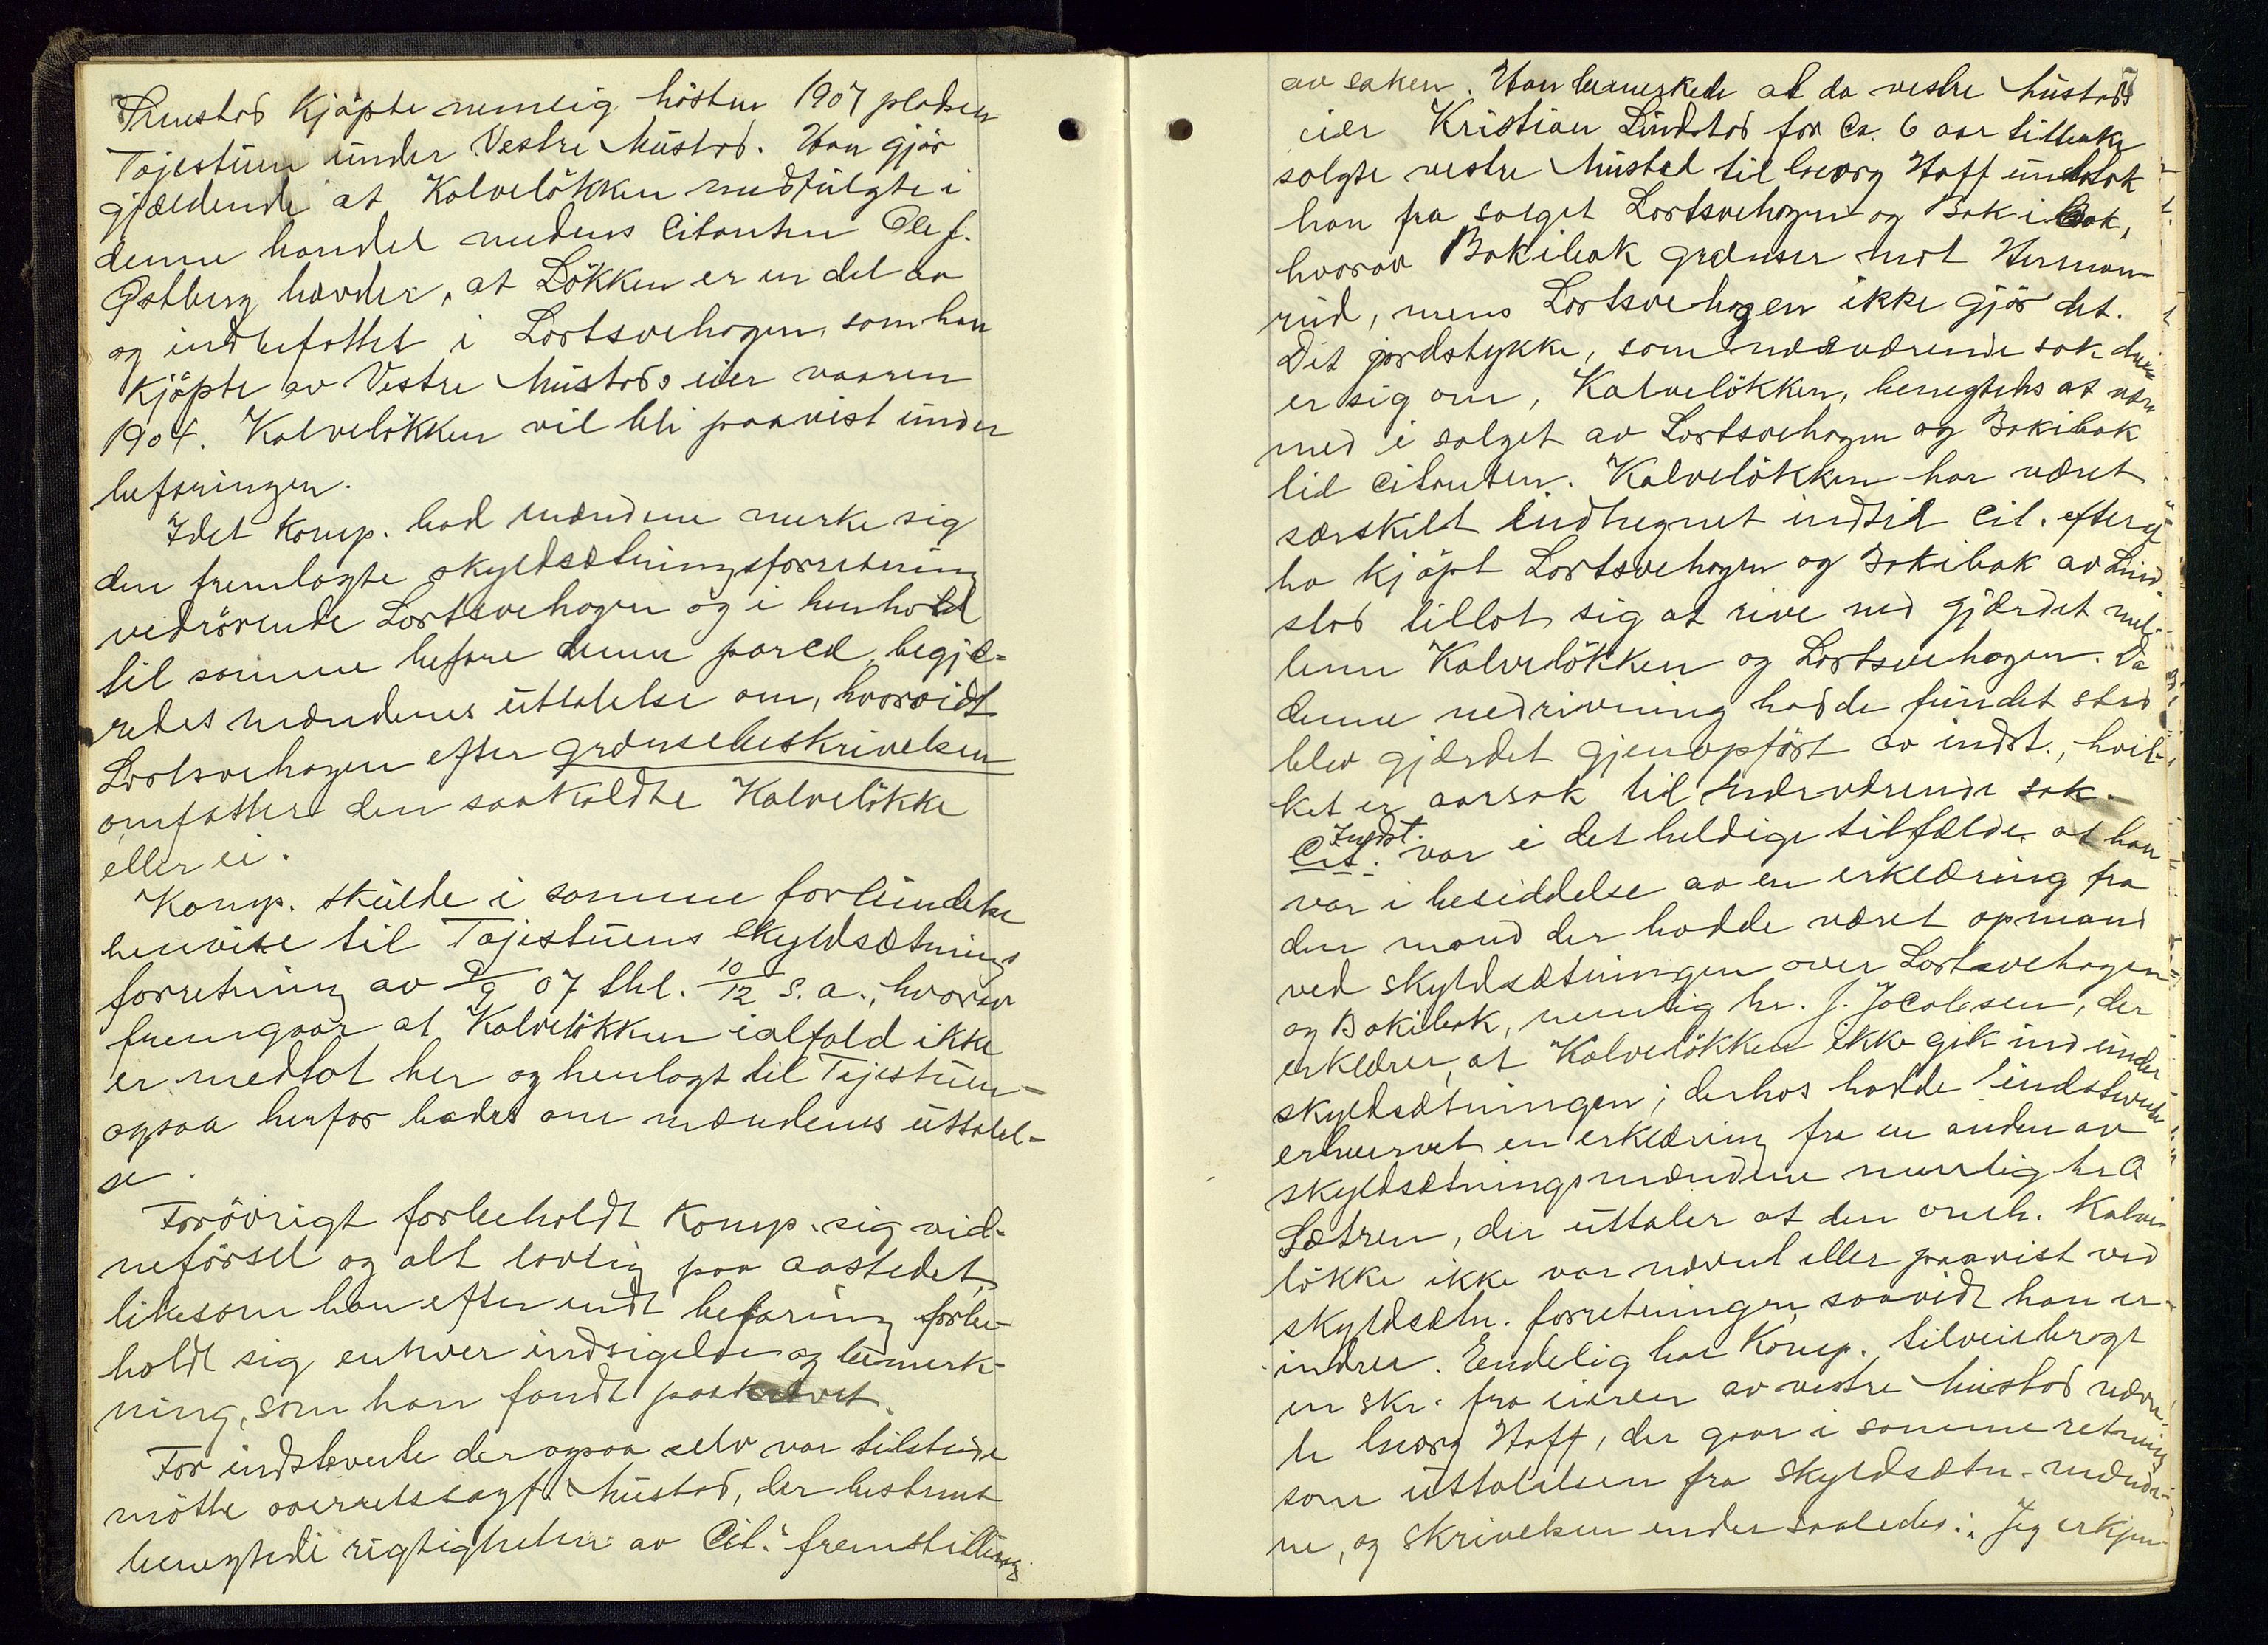 Trustad kjøpte nemlig høsten 1907 pladsen
Tajestuen under Vestre Mustad. Han gjør
gjældende at Kalveløkken medfulgte i
denne handel medens Citanten Ole J.
Østberg hævder, at Løkken er en del av
og indbefattet i Lortsvehagen, som han
kjøpte av Vestre Mustads eier vaaren
1904. Kalveløkken vil bli paavist under
befaringen.
Idet Komp. bad mændene merke sig
den fremlagte skyldsætningsforretning
vedrørende Lortsvehagen og i henhold
til samme befare denne parcel, begjæ-
redes mændenes uttalelse om, hvorvidt
Lortsvehagen efter grænsebeskrivelsen
omfatter den saakaldte Kalveløkke
eller ei.
Komp. skulde i samme forbindelse
henvise til Tajestuens skyldsætnings
forretning av 9/9 07 thl. 10/12 s. a., hvorav
fremgaar at Kalveløkken ialfald ikke
er medtat her og henlagt til Tajestuen -
ogsaa herfor bades om mændenes uttalel-
se.
Forøvrigt forbeholdt Komp. sig vid-
neførsel og alt lovlig paa aastedet,
likesom han efter endt befaring forbe-
holdt sig enhver indsigelse og bemerk-
ning, som han fandt paakrævet.
For indstevnte der ogsaa selv var tilstede
møtte overretssagf. Mustad, der bestemt
benegtede rigtigheten av Cit.s fremstilling
av saken. Han bemerkede at da vestre Mustads
eier Kristian Lindstad for ca. 6 aar tilbake
solgte vestre Mustad til Georg Hoff undtok
han fra salget Lortsvehagen og Bak i bak,
hvorav Bakibak grænser mot Herman-
rud, mens Lortsvehagen ikke gjør det.
Det jordstykke, som nærværende sak dreier
er sig om, Kalveløkken, benegtedes at være
med i salget av Lortsvehagen og Bakibak
til Citanten. Kalveløkken har været
særskilt indhegnet indtil Cit. efter at
ha kjøpt Lortsvehagen og Bakibak av Lind-
stad tillot sig at rive ned gjærdet mel-
lem Kalveløkken og Lortsvehagen. Da
denne nedrivning hadde fundet sted
blev gjærdet gjenopført av indst., hvil-
ket er aarsak til nærværende sak. -
Indst.
Cit. var i det heldige tilfælde at han
var i besiddelse av en erklæring fra
den mand der hadde været opmand
ved skyldsætningen over Lortsvehagen
og Bakibak, nemlig hr. J. Jacobsen, der
erklærer, at Kalveløkken ikke gik ind under
skyldsætningen; derhos hadde indstevnte
erhvervet en erklæring fra en anden av
skyldsætningsmændene nemlig hr. A
Sætren, der uttaler at den omh. Kalve-
løkke ikke var nævnt eller paavist ved
skyldsætn. forretningen, saavidt han er-
indrer. Endelig har Komp. tilveiebragt
en skr. fra eieren av vestre Mustad nævn-
te Georg Hoff, der gaar i samme retning
som uttalelsen fra skyldsætn. mænde-
ne, og skrivelsen ender saaledes: "Jeg erkjen-